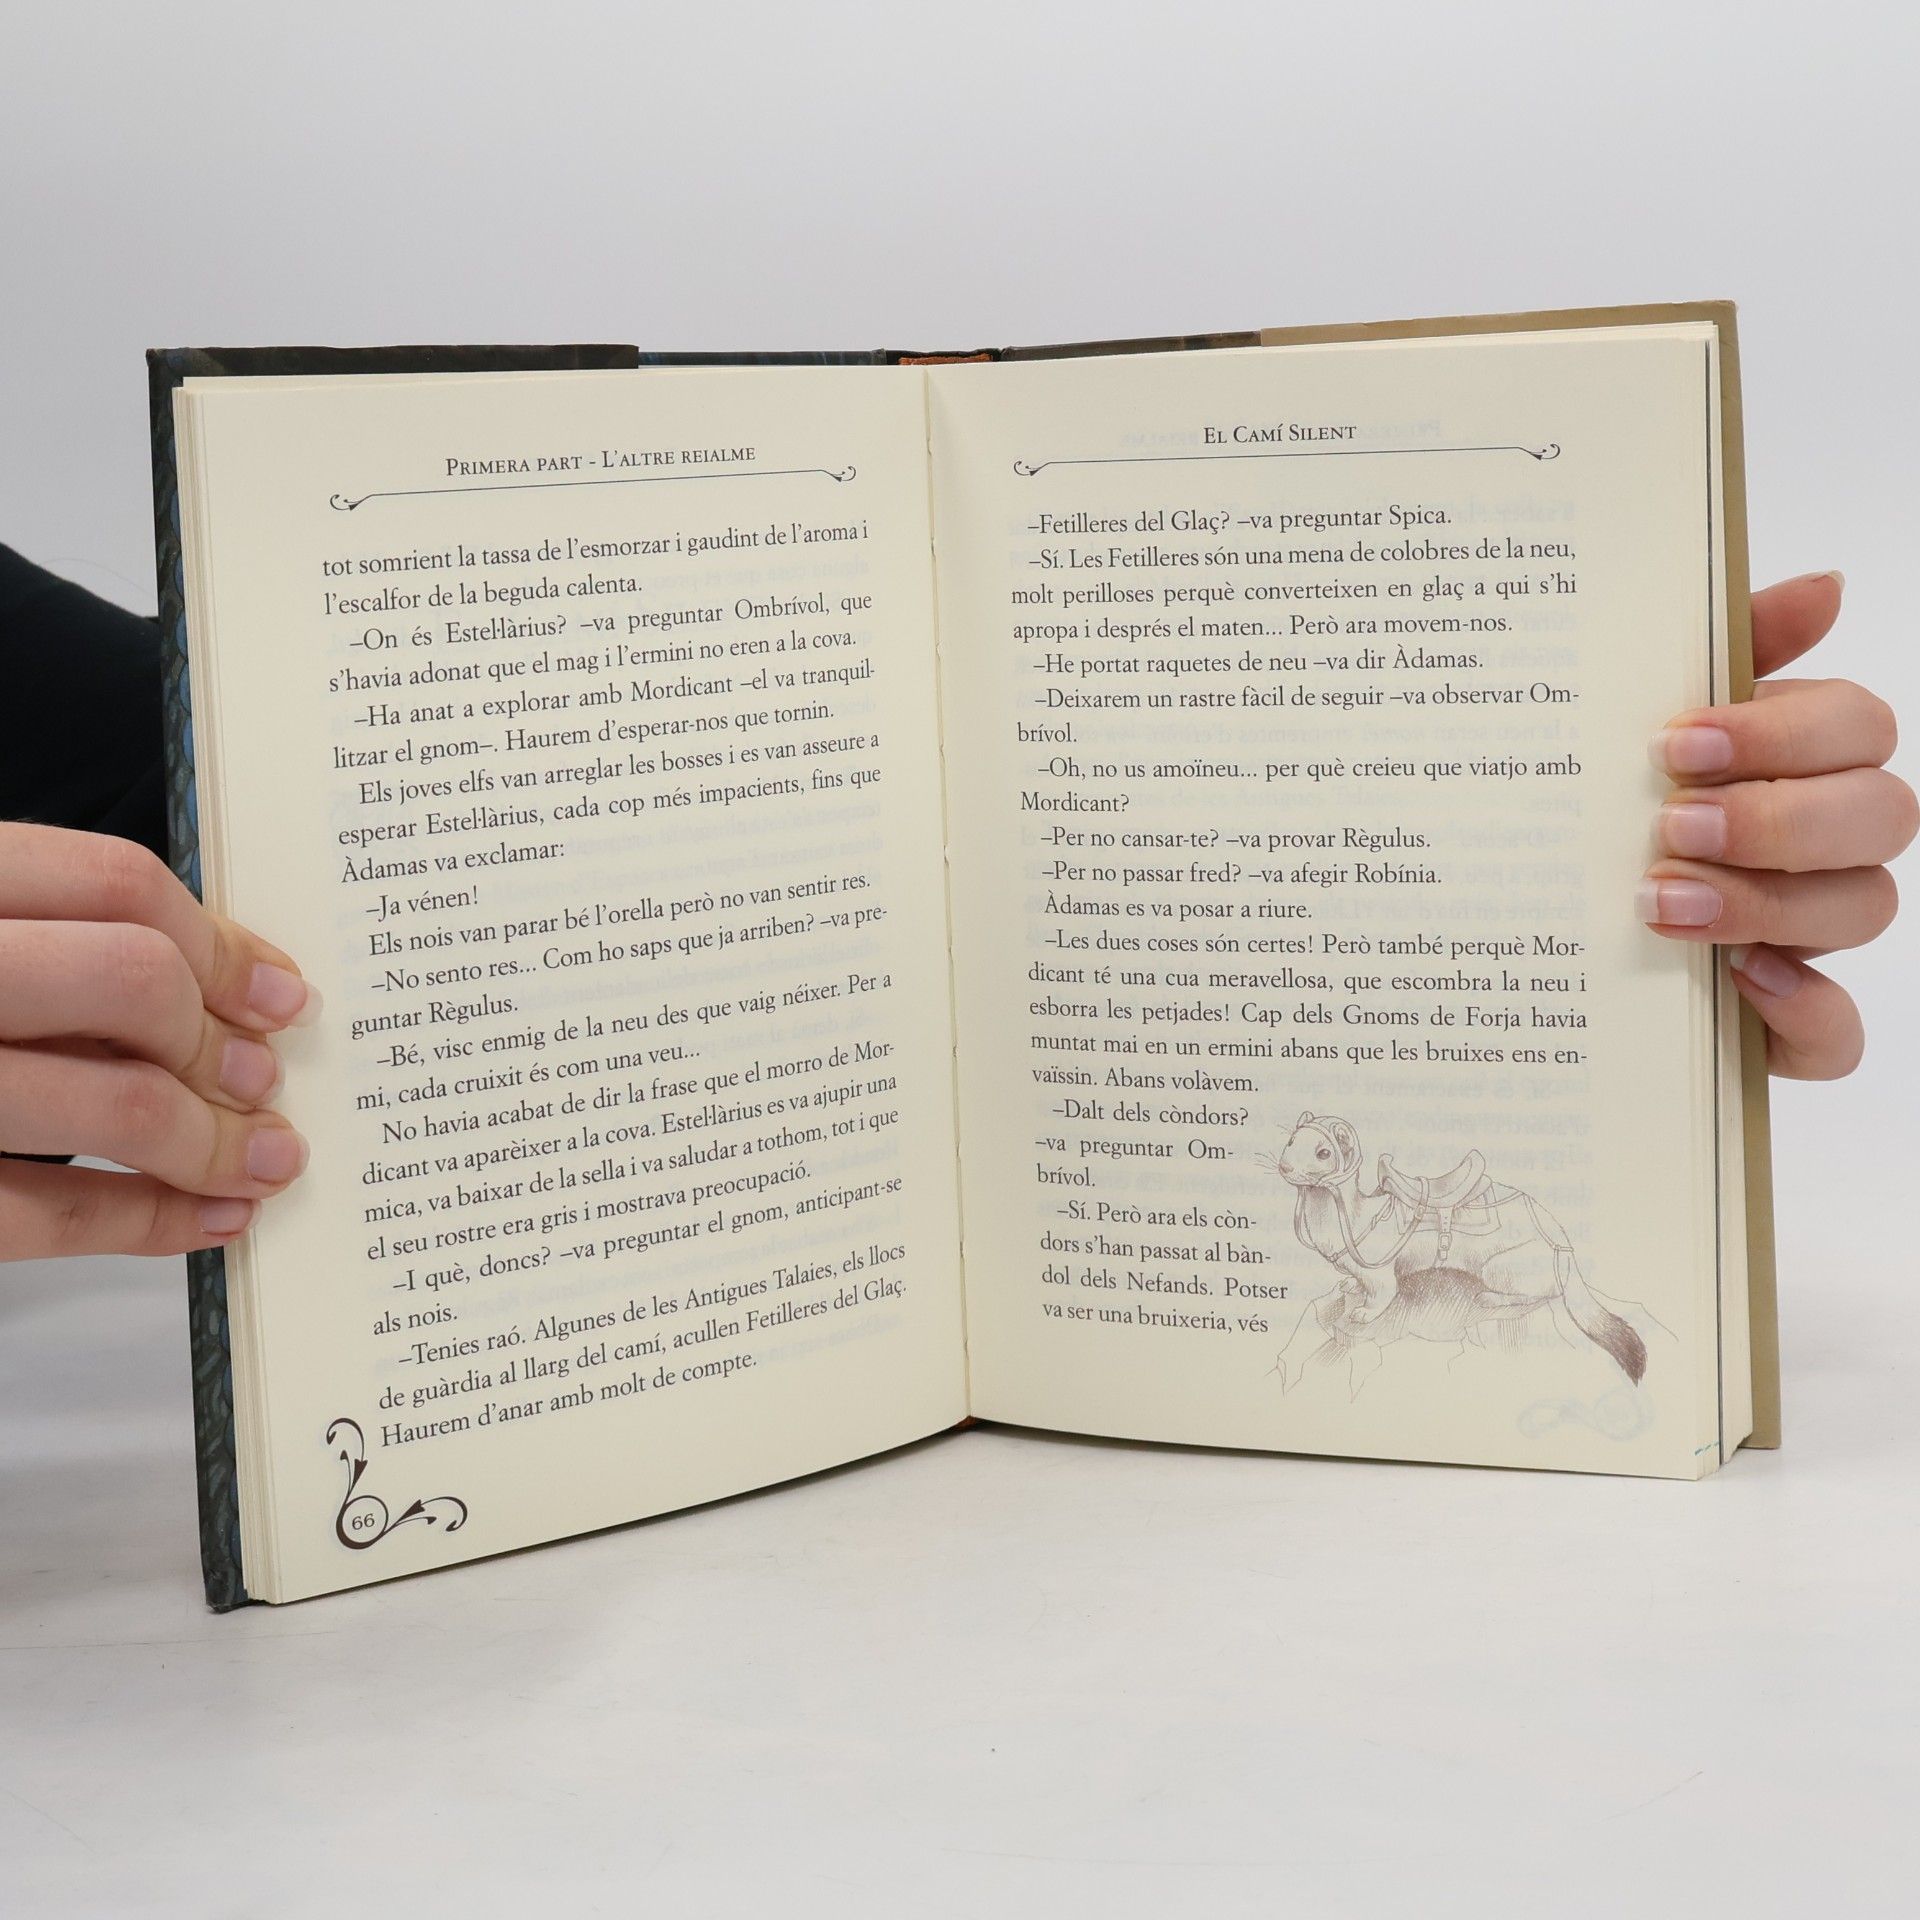 PRIMERA PART - L'ALTRE REIALME
tot somrient la tassa de l'esmorzar i gaudint de l'aroma i
l'escalfor de la beguda calenta.
–On és Estel·làrius? –va preguntar Ombrívol, que
s'havia adonat que el mag i l'ermini no eren a la cova.
–Ha anat a explorar amb Mordicant –el va tranquil-
litzar el gnom–. Haurem d'esperar-nos que tornin.
Els joves elfs van arreglar les bosses i es van asseure a
esperar Estel·làrius, cada cop més impacients, fins que
Àdamas va exclamar:
–Ja vénen!
Els nois van parar bé l'orella però no van sentir res.
–No sento res... Com ho saps que ja arriben? –va pre-
guntar Règulus.
–Bé, visc enmig de la neu des que vaig néixer. Per a
mi, cada cruixit és com una veu...
No havia acabat de dir la frase que el morro de Mor-
dicant va aparèixer a la cova. Estel·làrius es va ajupir una
mica, va baixar de la sella i va saludar a tothom, tot i que
el seu rostre era gris i mostrava preocupació.
–I què, doncs? –va preguntar el gnom, anticipant-se
als nois.
–Tenies raó. Algunes de les Antigues Talaies, els llocs
de guàrdia al llarg del camí, acullen Fetilleres del Glaç.
Haurem d'anar amb molt de compte.
66
EL CAMÍ SILENT
–Fetilleres del Glaç? –va preguntar Spica.
–Sí. Les Fetilleres són una mena de colobres de la neu,
molt perilloses perquè converteixen en glaç a qui s'hi
apropa i després el maten... Però ara movem-nos.
–He portat raquetes de neu –va dir Àdamas.
–Deixarem un rastre fàcil de seguir –va observar Om-
brívol.
–Oh, no us amoïneu... per què creieu que viatjo amb
Mordicant?
–Per no cansar-te? –va provar Règulus.
–Per no passar fred? –va afegir Robínia.
Àdamas es va posar a riure.
–Les dues coses són certes! Però també perquè Mor-
dicant té una cua meravellosa, que escombra la neu i
esborra les petjades! Cap dels Gnoms de Forja havia
muntat mai en un ermini abans que les bruixes ens en-
vaïssin. Abans volàvem.
–Dalt dels còndors?
–va preguntar Om-
brívol.
–Sí. Però ara els còn-
dors s'han passat al bàn-
dol dels Nefands. Potser
va ser una bruixeria, vés